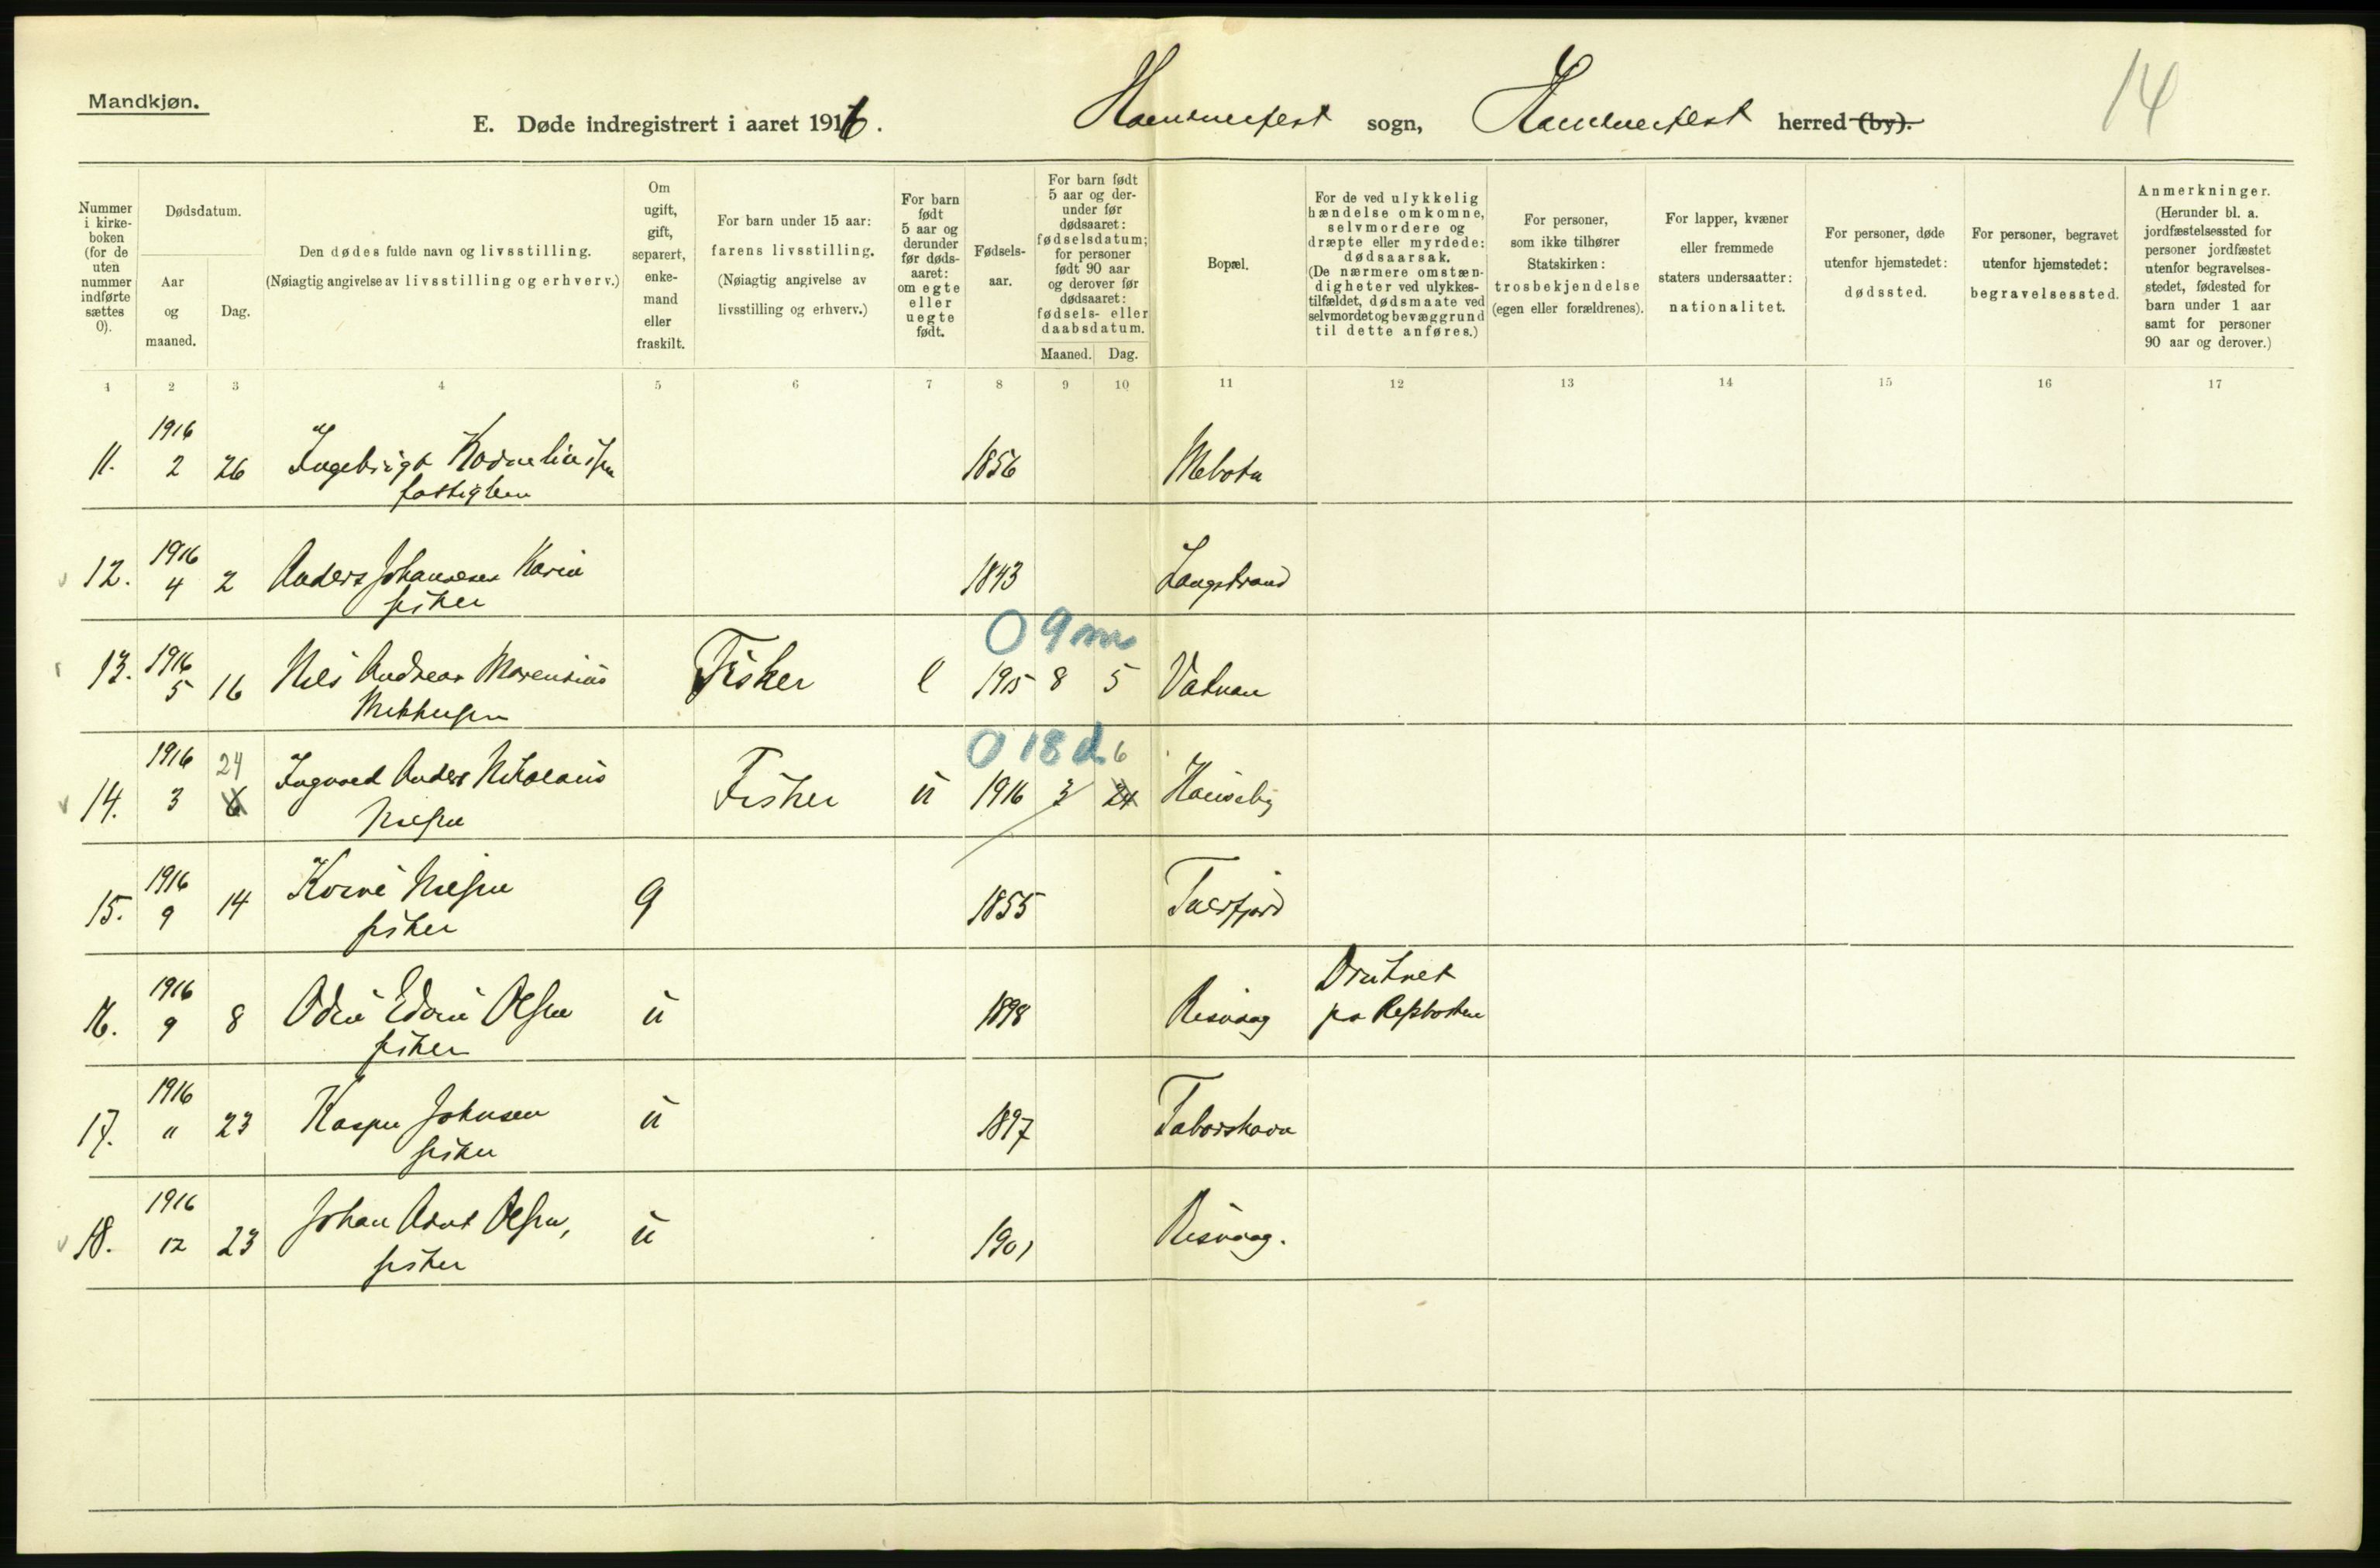 Mandkjøn.
E. Døde indregistrert i aaret 1916. Hammerfest sogn, Hammerfest herred (by).
14
Nummer i kirke-boken (for de uten nummer indførte sættes 0).
Dødsdatum.
Aar og maaned.
Dag.
Den dødes fulde navn og livsstilling.
(Nøiagtig angivelse av livsstilling og erhverv.)
Om ugift, gift, separert, enke-mand eller fraskilt.
For barn under 15 aar:
farens livsstilling.
(Nøiagtig angivelse av livsstilling og erhverv.)
For barn født 5 aar og derunder før døds-aaret: om egte eller uegte født.
Fødsels-aar.
For barn født 5 aar og der-under før dødsaaret: fødselsdatum; for personer født 90 aar og derover før dødsaaret: fødsels- eller daabsdatum.
Maaned. Dag.
Bopæl.
For de ved ulykkelig hændelse omkomne, selvmordere og dræpte eller myrdede: dødsaarsak.
(De nærmere omstæn-digheter ved ulykkes-tilfældet, dødsmaate ved selvmordet og bevæggrund til dette anføres.)
For personer, som ikke tilhører Statskirken: trosbekjendelse (egen eller forældrenes).
For lapper, kvæner eller fremmede staters undersaatter: nationalitet.
For personer, døde utenfor hjemstedet: dødssted.
For personer, begravet utenfor hjemstedet: begravelsessted.
Anmerkninger.
(Herunder bl. a. jordfæstelsessted for personer jordfæstet utenfor begravelses-stedet, fødested for barn under 1 aar samt for personer 90 aar og derover.)
1 2 3 4 5 6 7 8 9 10 11 12 13 14 15 16 17
1916
11. 2 26 Ingebrigt Korneliussen 1856
1916
12. 4 2 Anders Johannesen 1843 Langstrand
fisker
0 9 m
13. 1916 5 16 Nils Andreas Fisker e 1915 8 5 Vatnan
Mikkelsen
0 18 d 6
1916 24
14. 3 6 Ingvald Anders Nikolaus Fisker u 1916 3 24
Nilsen
1916
15. 9 14 Nilsen g 1855
fisker
1916 Druknet
16. 9 8 Odin Edvin Olsen u 1898 Risvaag paa Repbotten
fisker
1916
17. " 23 Kasper Johnsen u 1897
fisker
1916
18. 12 23 Johan Arnt Olsen, u 1901 Risvaag.
fisker